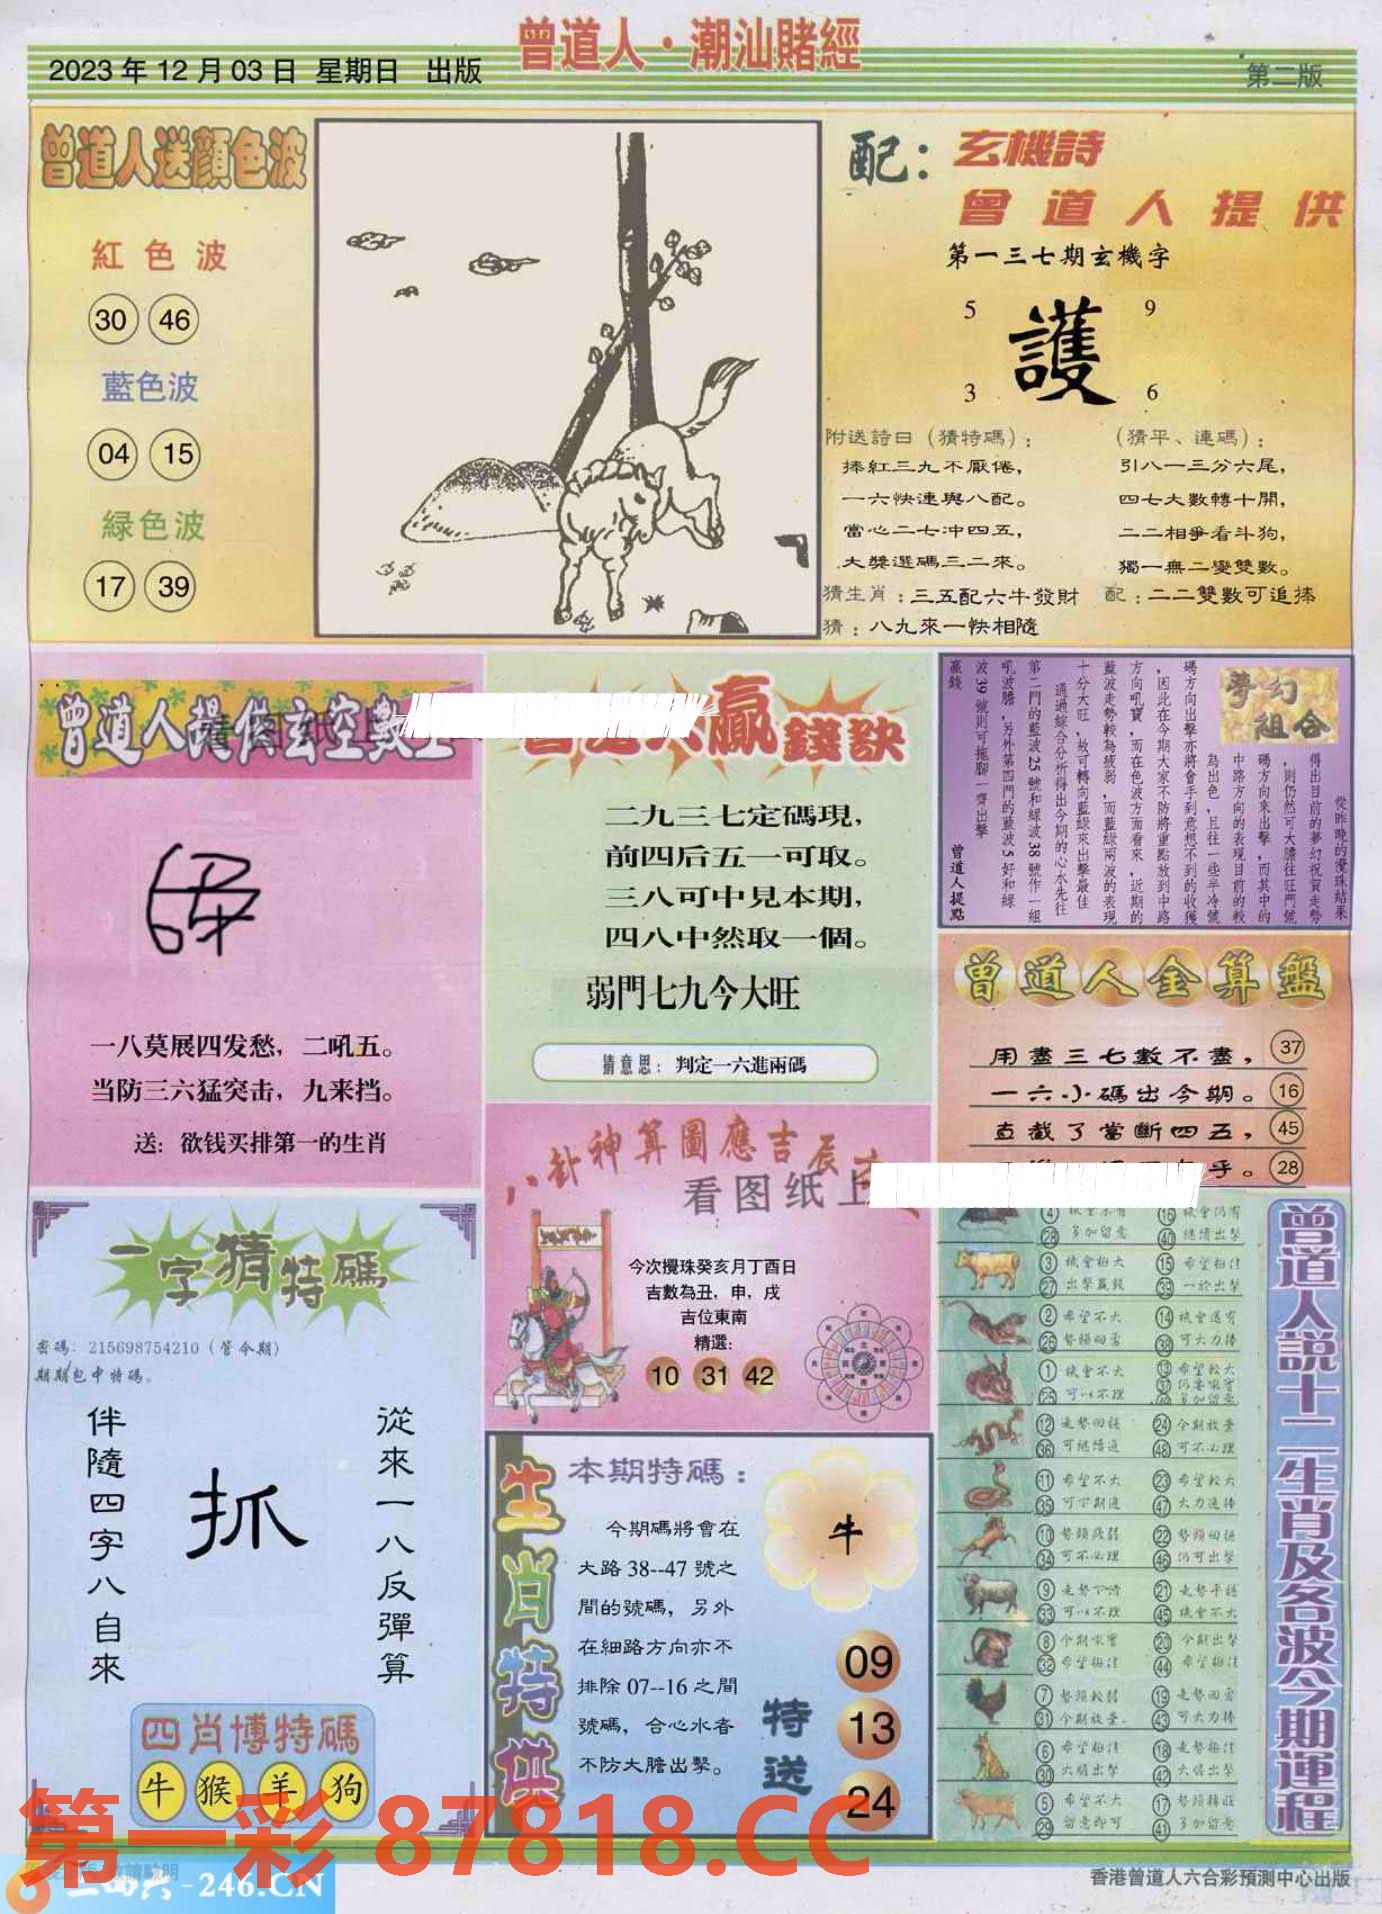 曾道人·潮汕賭經
2023年12月03日 星期日 出版
第二版
曾道人送顔色波
紅色波
30 46
藍色波
04 15
緑色波
17 39
配：玄機詩
曾道人提供
第一三七期玄機字
5 9
護
3 6
附送詩曰（猜特碼）：
捧紅三九不厭倦，
一六快連與八配。
當心二七冲四五，
大獎選碼三二來。
猜生肖：三五配六牛發財
猜：八九來一快相隨
（猜平、連碼）：
引八一三分六尾，
四七大數轉十開，
二二相爭看斗狗，
獨一無二變雙數。
配：二二雙數可追捧
曾道人提供玄空數
一八莫展四发愁，二吼五。
当防三六猛突击，九来挡。
送：欲钱买排第一的生肖
贏錢訣
二九三七定碼現，
前四后五一可取。
三八可中見本期，
四八中然取一個。
弱門七九今大旺
猜意思：判定一六進兩碼
夢幻組合
從昨晚的攪珠結果
得出目前的夢幻祝賀走勢
，則仍然可大膽往旺門號
碼方向來出擊，而其中的
中路方向的表現目前的較
為出色，且往一些半冷號
碼方向出擊亦將會手到意想不到的收獲
，因此在今期大家不防將重點放到中路
方向吼寶，而在色波方面看來，近期的
藍波走勢較為疲弱，而藍綠兩波的表現
十分大旺，故可轉向藍綠來出擊最佳
通過綜合分析得出今期的心水先往
第二門的藍波25號和綠波38號作一組
吼波膽，另外第四門的藍波5好和綠
波39號則可拖腳一齊出擊
贏錢
曾道人提點
曾道人金算盤
用盡三七數不盡， 37
一六小碼出今期。 16
直截了當斷四五， 45
乎。 28
八卦神算圖應吉辰
看图纸上
今次攪珠癸亥月丁酉日
吉數為丑，申，戌
吉位東南
精選：
10 31 42
一字猜特碼
密碼：215698754210（管今期）
期期包中特碼。
從來一八反彈算
抓
伴隨四字八自來
四肖博特碼
牛 猴 羊 狗
生肖特供
本期特碼：
今期碼將會在
大路38--47號之
間的號碼，另外
在細路方向亦不
排除07--16之間
號碼，合心水者
不防大膽出擊。
牛
特送
09
13
24
曾道人説十二生肖及各波今期運程
4 16 機會仍有
28 多加留意 40 繼續出擊
3 機會極大 15 希望極佳
27 出擊贏錢 39 一於出擊
2 希望不大 14 機會還有
26 勢頭回勇 38 可大力捧
1 機會不大 13 希望較大
25 可以不理 37
12 走勢回穩 24 今期放棄
36 可繼續追 48 可不必理
11 希望不大 23 希望較大
35 可下期追 47 大力追捧
10 勢頭疲弱 22 勢頭回穩
34 可不必理 46 仍可出擊
9 走勢下滑 21 走勢平穩
33 可以不理 45 機會不大
8 今期吼實 20 今期出擊
32 希望極佳 44 希望極佳
7 勢頭較弱 19 走勢回勇
31 今期放棄 43 可大力捧
6 希望極佳 18 走勢極佳
30 大膽出擊 42 大膽出擊
5 希望不大 17 勢頭轉旺
29 留意即可 41 多加留意
第一彩 87818.CC
二四六-246.CN
香港曾道人六合彩預測中心出版